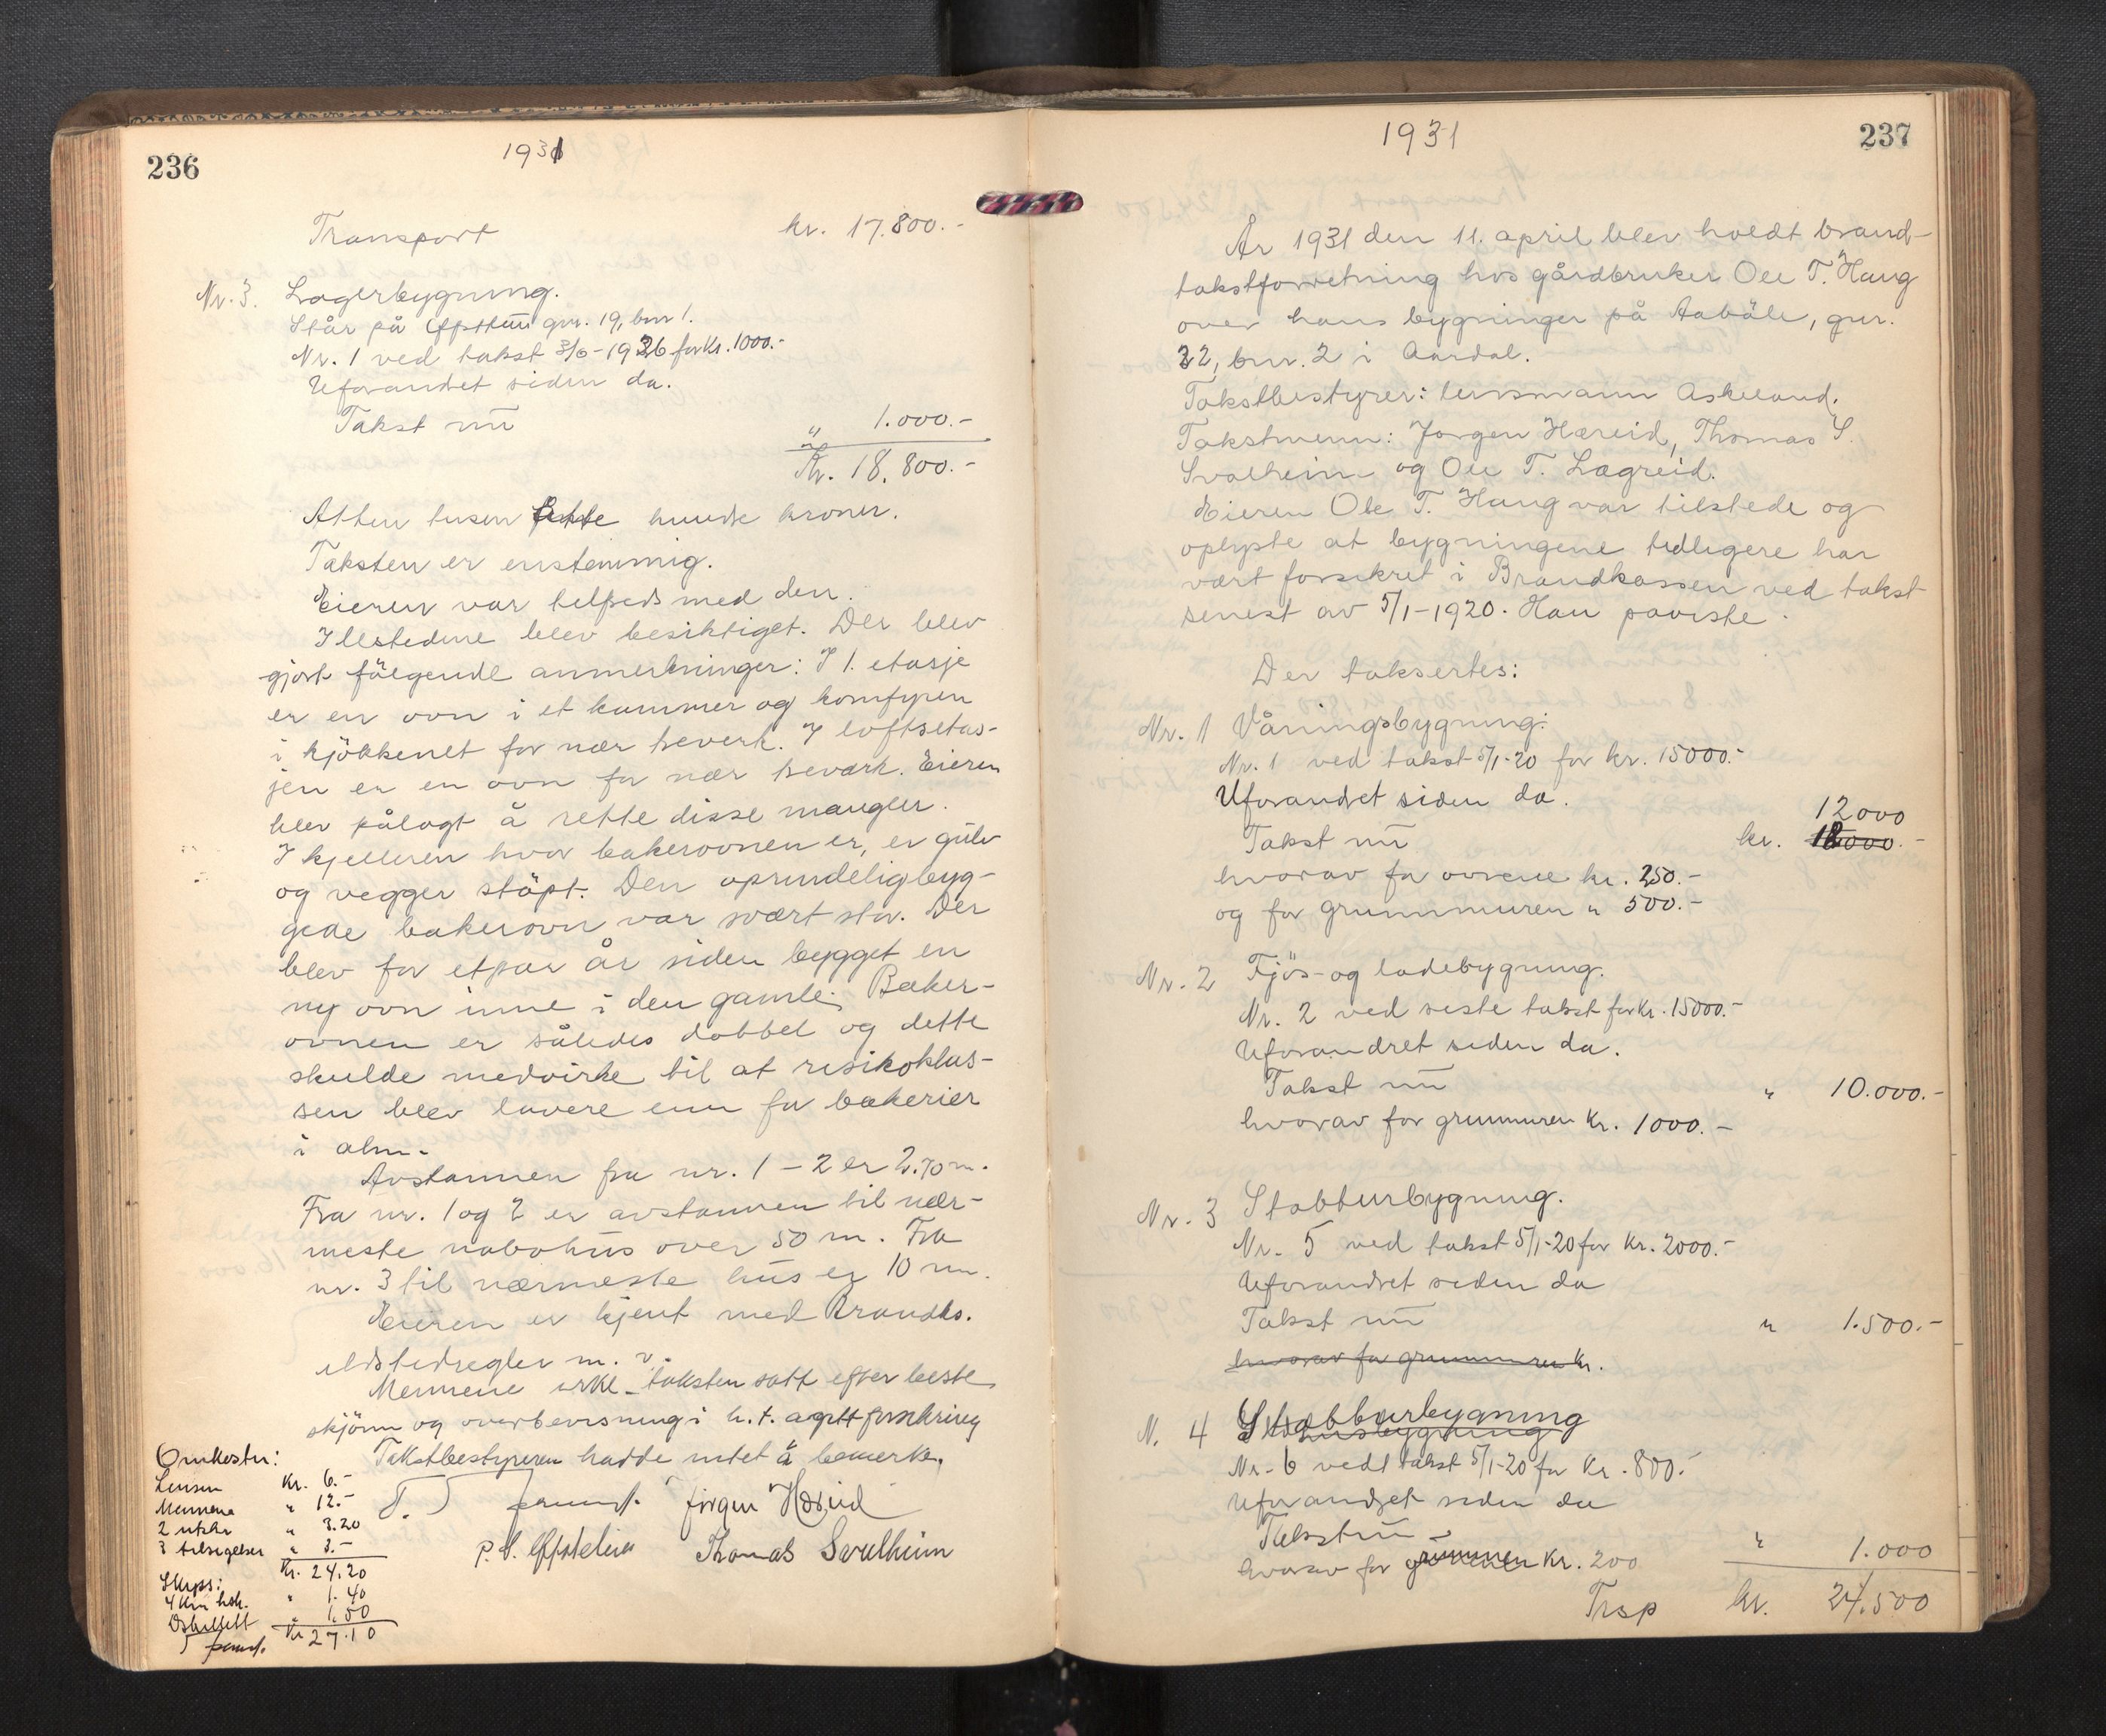 236
1931
Transport kr. 17.800.-
Nr. 3. Lagerbygning.
Står på Offsteini gnr. 19, bnr 1.
Nr. 1 ved takst 3/6-1926 for Kr. 1000.-
Uforandret siden da.
Takst nu " 1.000.-
Kr. 18.800.-
Atten tusen åtte hundre kroner.
Taksten er enstemmig.
Eieren var tilfreds med den.
Ilstedene blev besiktiget. Der blev
gjort følgende anmerkninger: I 1. etasje
er en ovn i et kammer og komfyren
i kjøkkenet for nær treverk. I loftsetas-
jen er en ovn for nær treverk. Eieren
blev pålagt å rette disse mangler.
I kjelleren hvor bakerovnen er, er gulv
og vegger støpt. Den oprindelig byg-
gede bakerovn var svært stor. Der
blev for etpar år siden bygget en
ny ovn inne i den gamle. Baker-
ovnen er således dobbel og dette
skulde medvirke til at risikoklas-
sen blev lavere enn for bakerier
i alm.
Avstannen fra nr. 1 - 2 er 2.70 m.
Fra nr. 1 og 2 er avstannen til nær-
meste nabohus over 50 m. Fra
nr. 3 til nærmeste hus er 10 m.
Eieren er kjent med Brandks.
ildstedregler m. v.
Mennene erkl. taksten satt efter beste
skjønn og overbevisning i h. t. avgitt forsikring
Takstbestyreren hadde intet å bemerke.
Jørgen Hæreid
Thomas Svalheim
Omkostn:
Lensm Kr. 6.-
Mennene " 12.-
2 utskr " 3.20
3 tilsigelser " 3.-
Kr. 24.20
Skyps:
4 km hsk. " 1.40
Dskillett " 1.50
Kr 27.10
237
1931
År 1931 den 11. april blev holdt brand-
takstforretning hos gårdbruker Ole T. Haug
over hans bygninger på Aabøle, gnr.
22, bnr. 2 i Aardal.
Takstbestyrer: lensmann Askeland.
Takstmenn: Jørgen Hæreid, Thomas S.
Svalheim og Ole T. Lægreid.
Eieren Ole T. Haug var tilstede og
oplyste at bygningene tidligere har
vært forsikret i Brandkassen ved takst
senest av 5/1-1920. Han påviste.
Der taksertes:
Nr. 1 Våningsbygning.
Nr. 1 ved takst 5/1-20 for kr. 15000.-
Uforandret siden da.
12000
Takst nu kr. 18000.-
hvorav for ovnene kr. 250.-
og for grunnmuren " 500.-
Nr. 2 Fjøs- og ladebygning.
Nr. 2 ved siste takst for kr. 15000.-
Uforandret siden da.
Takst nu " 10.000.-
hvorav for grunmuren Kr. 1000.-
Nr. 3 Stabburbygning.
Nr. 5 ved takst 5/1-20 for kr. 2000.-
Uforandret siden da
Takst nu " 1.500.-
hvorav for grunmuren Kr.
N. 4 Stabburbygning
Nr. 6 ved takst 5/1-20 for Kr. 800.-
Uforandret siden da
Takst nu - " 1.000
hvorav for grunmuren Kr. 200
Trsp kr. 24.500